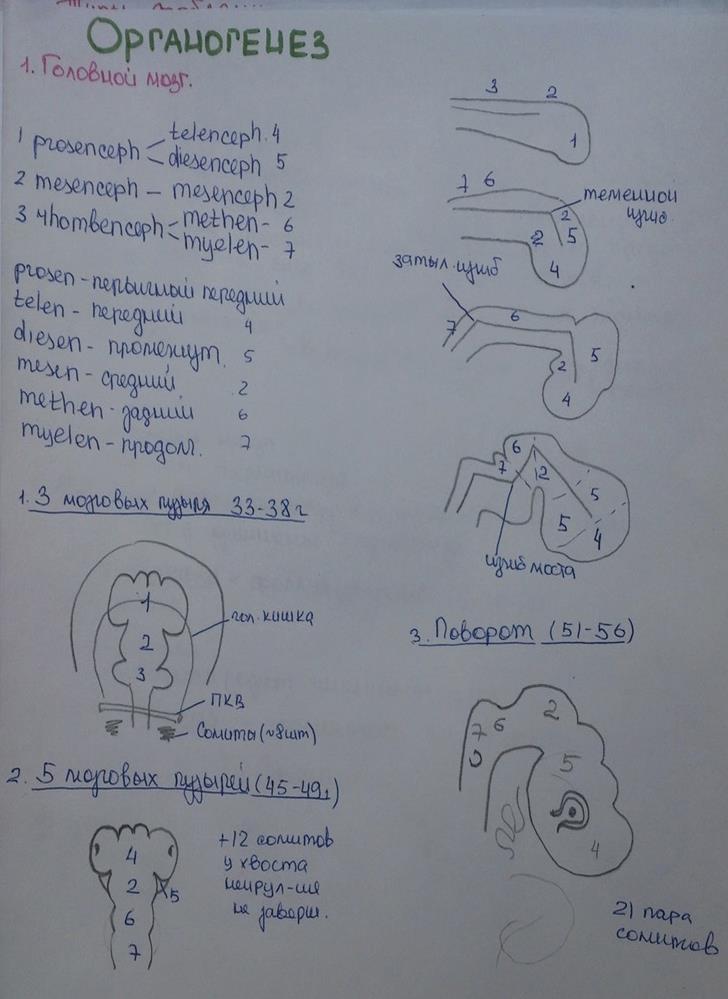 ОРГАНОГЕНЕЗ
1. Головной мозг.
1 prosenceph telenceph. 4
diesenceph 5
2 mesenceph – mesenceph 2
3 rhombenceph methen- 6
myelen- 7
prosen - первичный передний
telen - передний 4
diesen - промежут. 5
mesen - средний 2
methen - задний 6
myelen - продолг. 7
1. 3 мозговых пузыря 33-38г
1
2
3
гол. кишка
ПКВ
Сомиты (~8шт)
2. 5 мозговых пузырей (45-49)
4
2
5
6
7
+12 сомитов
у хвоста
нейрул-ия
не заверш.
3 2
1
7 6
теменной
изгиб.
2
2 5
4
затыл. изгиб
7 6
5
2
4
6
7 12
5
5
4
изгиб моста
3. Поворот (51-56)
7 6 2
5
4
21 пара
сомитов